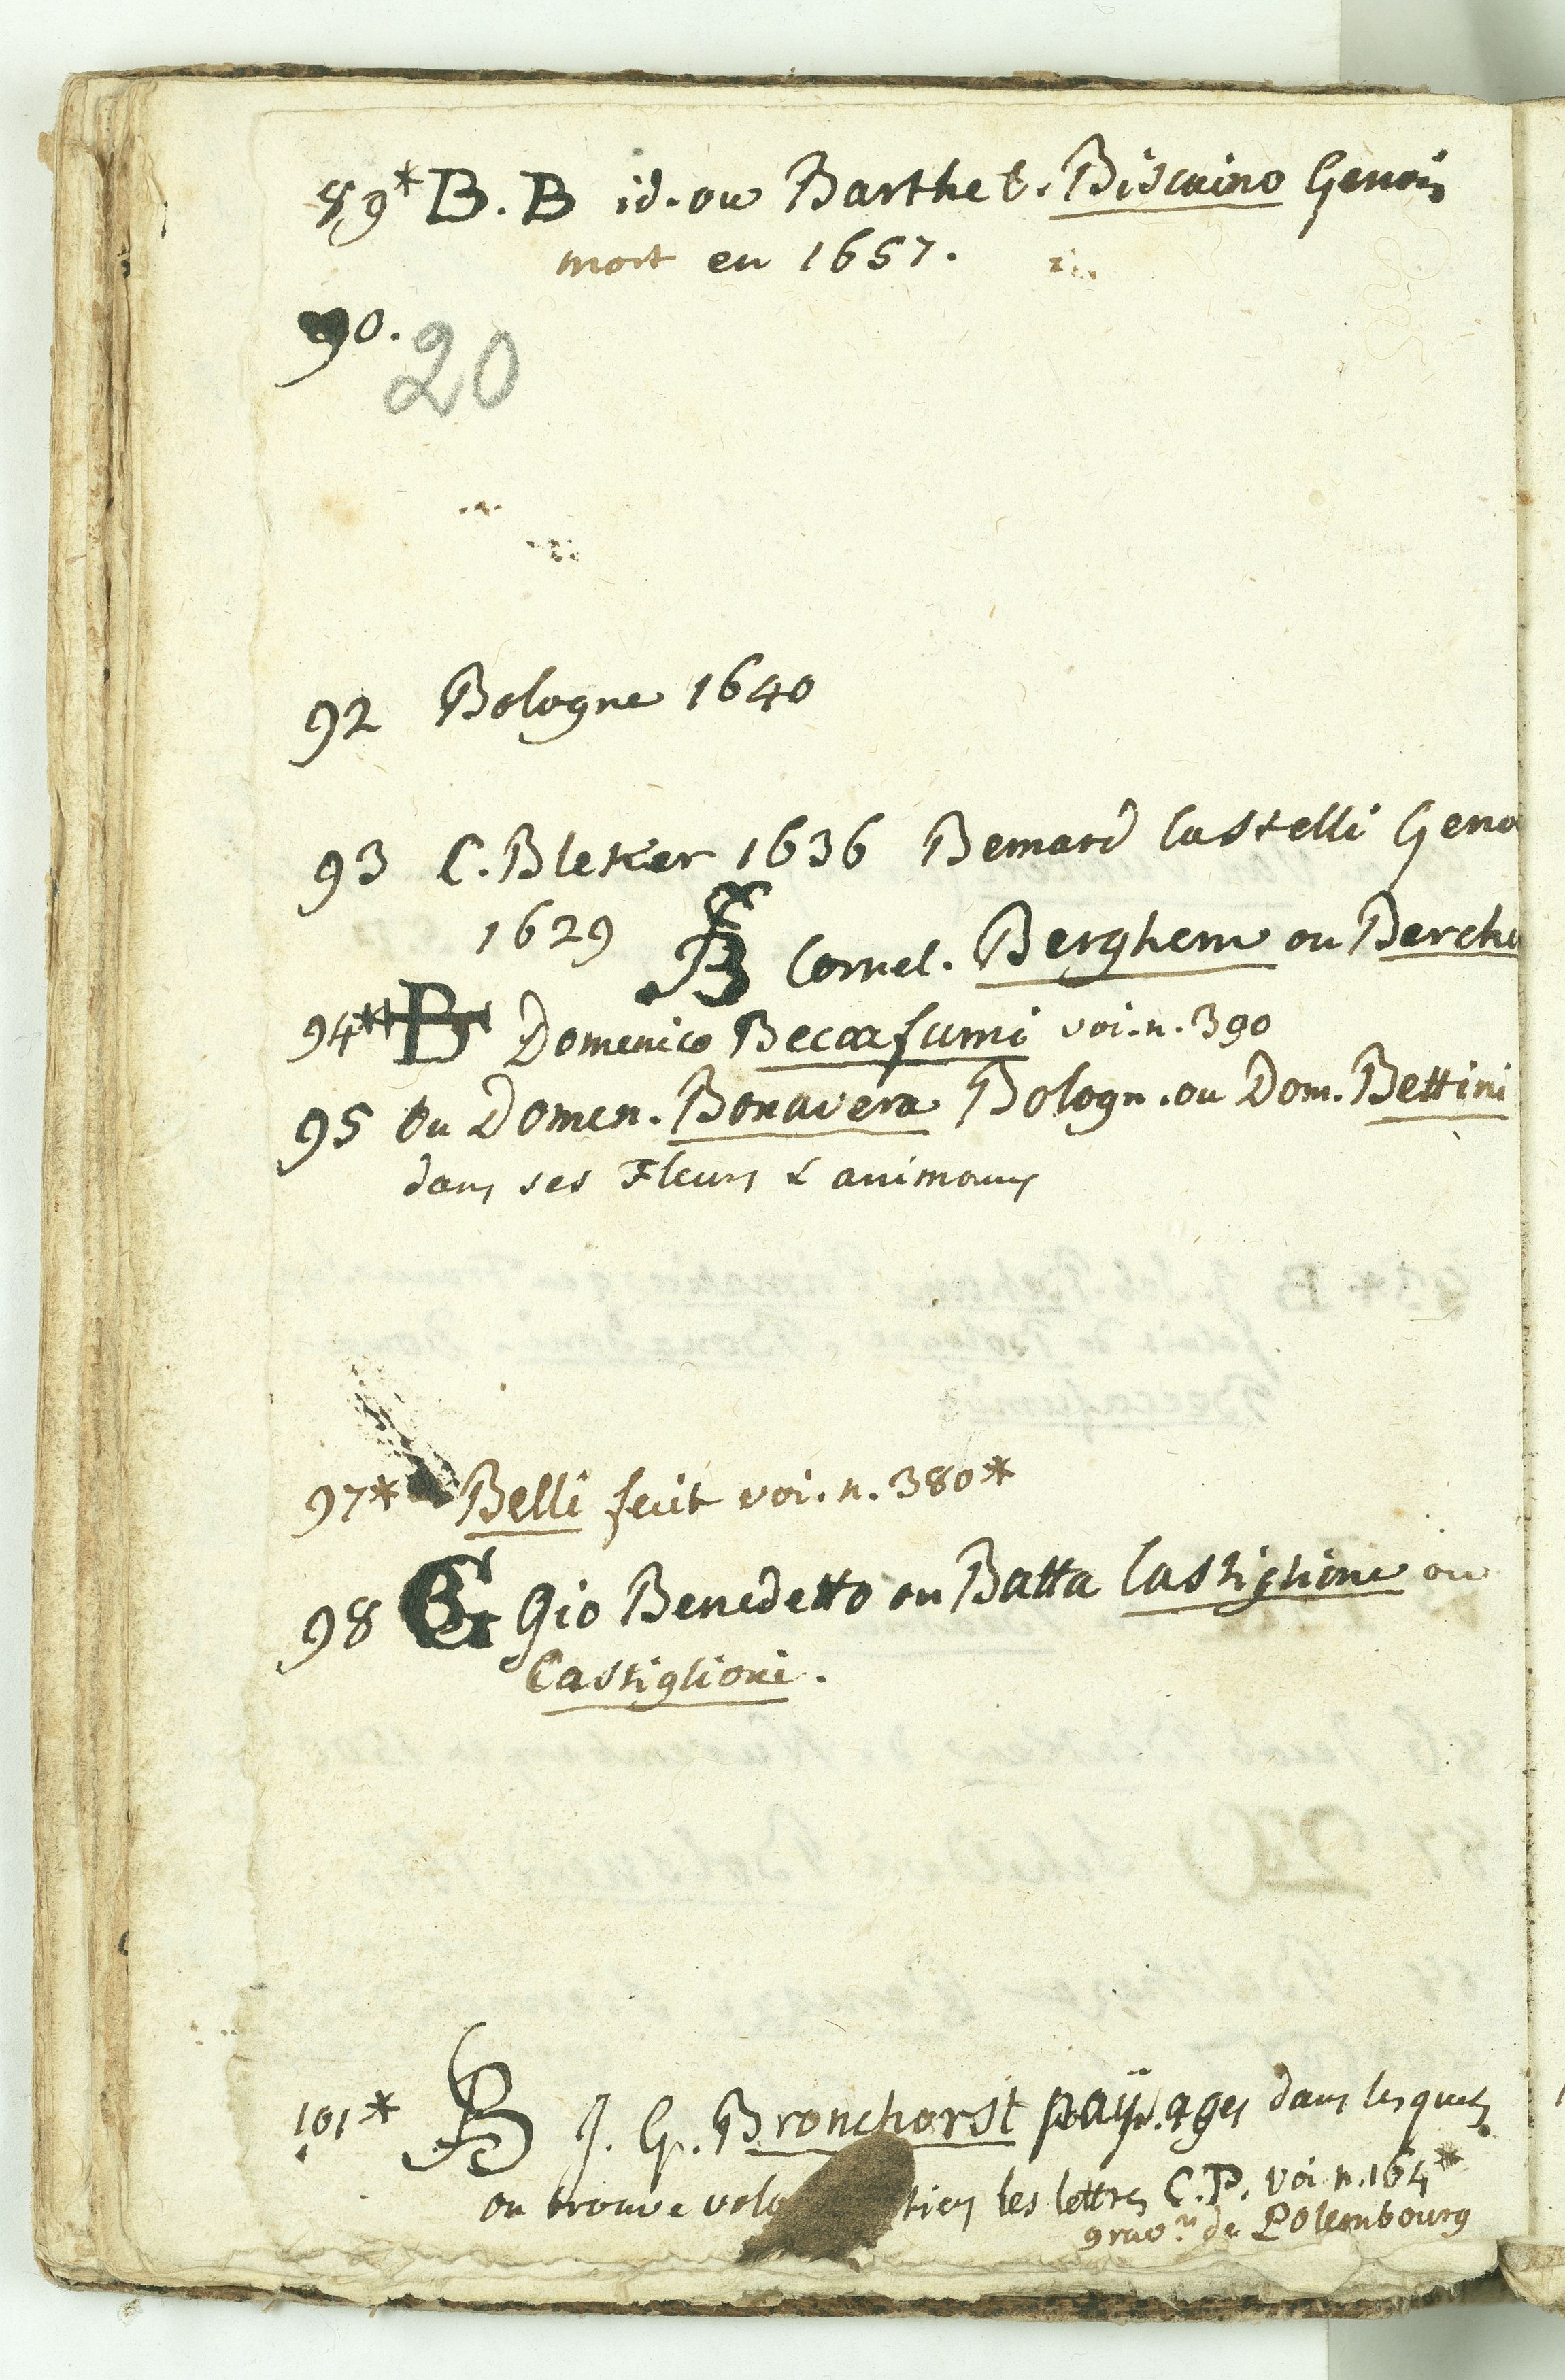 89* B. B id. ou Barthet. Biscaino Genois
mort en 1657.
90.
20
92 Bologne 1640
93 C. Bleker 1636 Bernard Castelli Geno
1629 CB Cornel. Berghem ou Berch
94** B Domenico Beccafumi voi. n. 390
95 Ou Domen. Bonavera Bologn. ou Dom. Bettini
dans ses Fleurs & animaux
97* Belli fecit voi. n. 380*
98 Gio Benedetto ou Batta Castiglione ou
Castiglioni.
101* B J. G. Bronchorst païsages dans lesquels
on trouve volo tiers les lettres C. P. voi n. 164*
grav.n de Polembourg